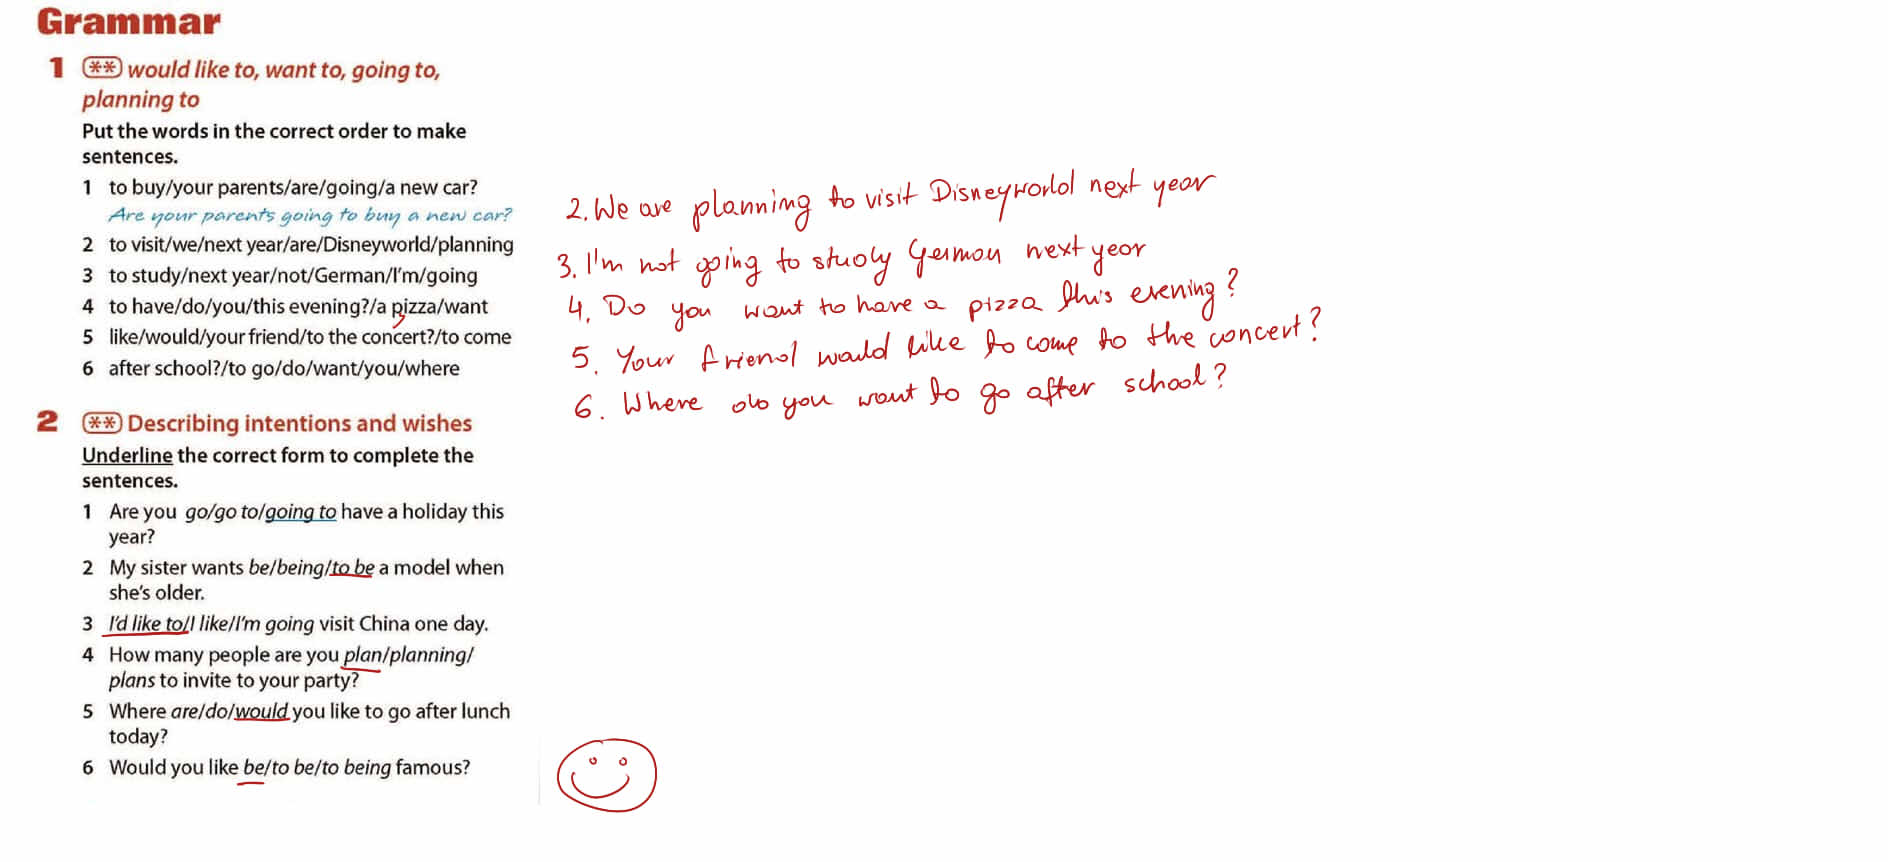 Grammar
1 ** would like to, want to, going to,
planning to
Put the words in the correct order to make
sentences.
1 to buy/your parents/are/going/a new car?
Are your parents going to buy a new car?
2 to visit/we/next year/are/Disneyworld/planning
3 to study/next year/not/German/I'm/going
4 to have/do/you/this evening?/a pizza/want
5 like/would/your friend/to the concert?/to come
6 after school?/to go/do/want/you/where
2 ** Describing intentions and wishes
Underline the correct form to complete the
sentences.
1 Are you go/go to/going to have a holiday this
year?
2 My sister wants be/being/to be a model when
she's older.
3 I'd like to/I like/I'm going visit China one day.
4 How many people are you plan/planning/
plans to invite to your party?
5 Where are/do/would you like to go after lunch
today?
6 Would you like be/to be/to being famous?
2. We are planning to visit Disneyworld next year
3. I'm not going to study German next year
4. Do you want to have a pizza this evening?
5. Your friend would like to come to the concert?
6. Where do you want to go after school?